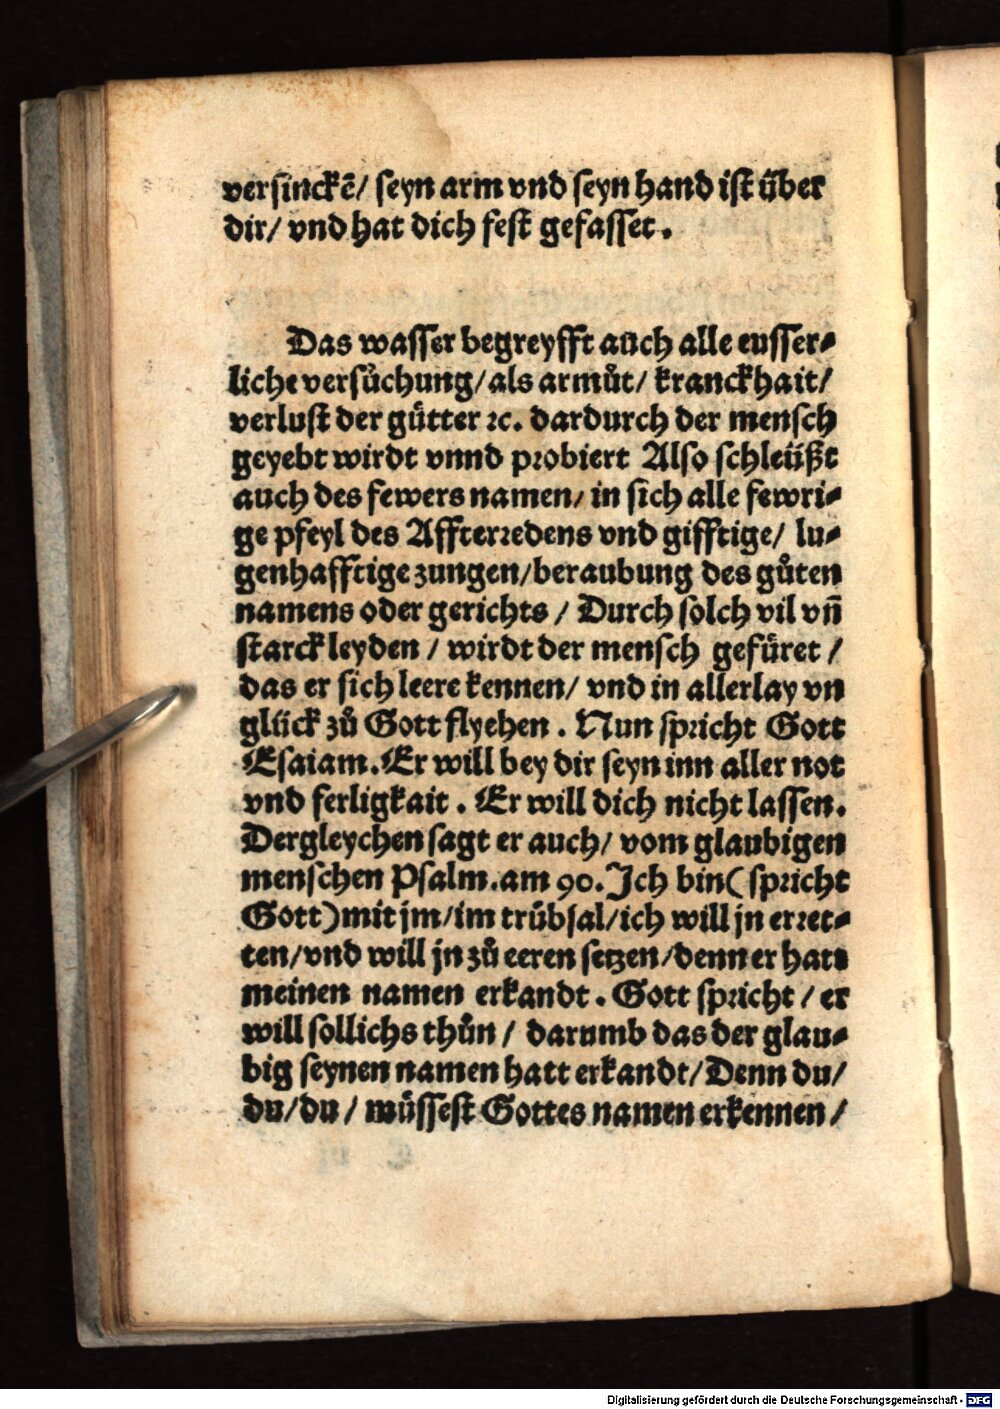 versinckē/ seyn arm vnd seyn hand ist über
dir/ vnd hat dich fest gefasset.
Das wasser begreyfft auch alle eusser⸗
liche versůchung/ als armůt/ kranckhait/
verlust der gütter ꝛc. dardurch der mensch
geyebt wirdt vnnd probiert Also schleüßt
auch des fewers namen/ in sich alle fewri⸗
ge pfeyl des Affterredens vnd gifftige/ lu⸗
genhafftige zungen/ beraubung des gůten
namens oder gerichts / Durch solch vil vn̄
starck leyden / wirdt der mensch gefüret /
das er sich leere kennen/ vnd in allerlay vn
glück zů Gott flyehen . Nun spricht Gott
Esaiam. Er will bey dir seyn inn aller not
vnd ferligkait . Er will dich nicht lassen.
Dergleychen sagt er auch/ vom glaubigen
menschen Psalm. am 90. Ich bin ( spricht
Gott) mit jm/ im trübsal/ ich will jn erret⸗
ten/ vnd will jn zů eeren setzen/ denn er hatt
meinen namen erkandt . Gott spricht / er
will sollichs thůn / darumb das der glau⸗
big seynen namen hatt erkandt/ Denn du/
du/ du / müssest Gottes namen erkennen /
Digitalisierung gefördert durch die Deutsche Forschungsgemeinschaft - DFG